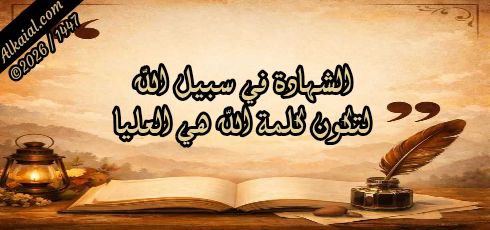 Alkaial.com
©2026 / 1447
الشهادة في سبيل الله
لتكون كلمة الله هي العليا